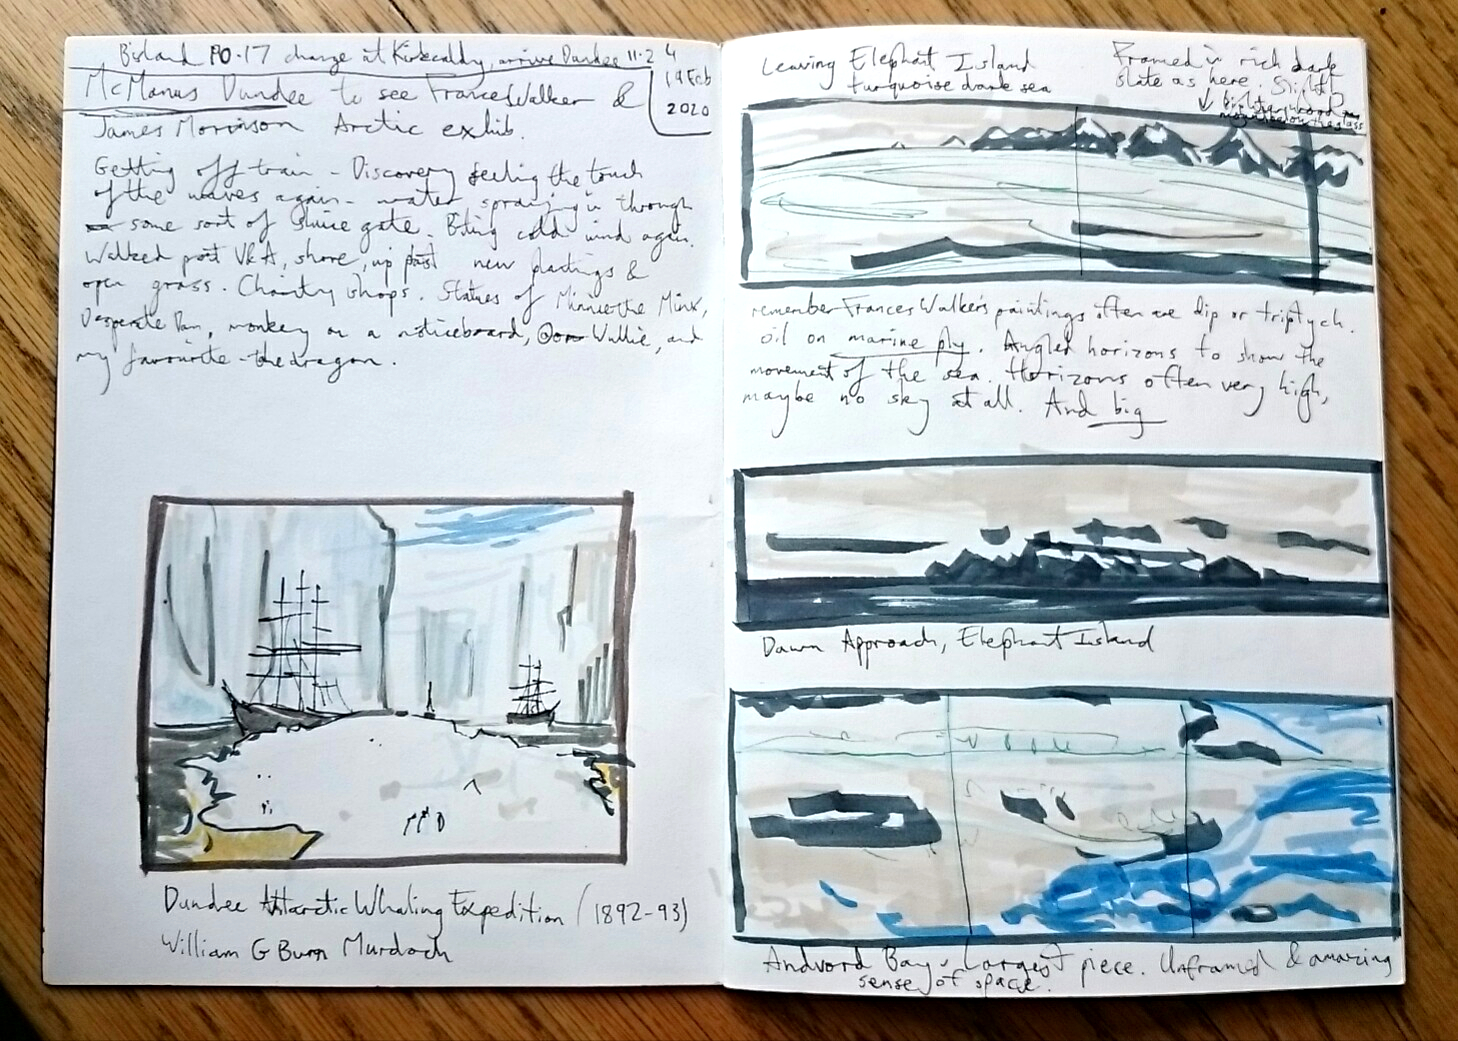 10.17 change at Kirkcaldy, arrive Dundee 11.24
McManus Dundee to see Frances Walker &
19 Feb
2020
James Morrison Arctic exhib.
Getting off train - Discovery feeling the touch
of the waves again - water spraying in through
some sort of sluice gate. Biting cold wind again.
Walked past V&A, shore, up past new plantings &
open grass. Charity shops. Statues of Minnie the Minx,
Desperate Dan, monkey on a noticeboard, Oor Wullie, and
my favourite - the dragon.
Dundee Antarctic Whaling Expedition (1892-93)
William G Burn Murdoch
Leaving Elephant Island
turquoise dark sea
Framed in rich dark
slate as here. Slight
remember Frances Walker's paintings often are dip or triptych.
oil on marine ply. Angled horizons to show the
movement of the sea. Horizons often very high,
maybe no sky at all. And big
Dawn Approach, Elephant Island
Andvord Bay - Largest piece. Unframed & amazing
sense of space.